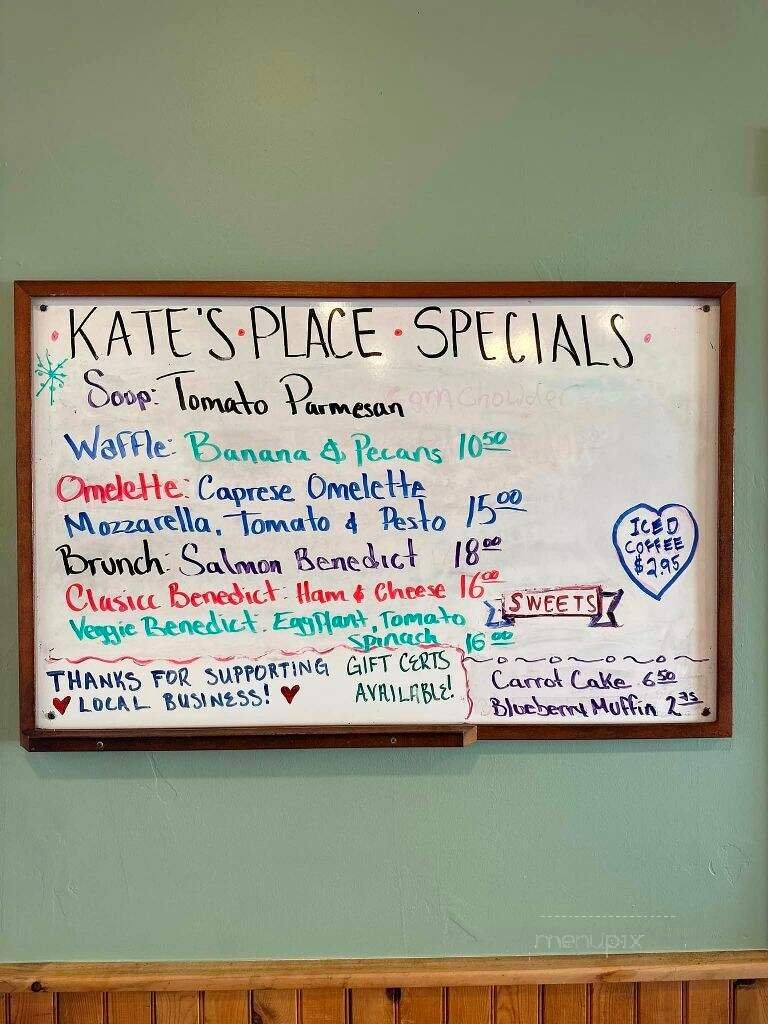 KATE'S·PLACE·SPECIALS
Soup: Tomato Parmesan
Corn Chowder
Waffle: Banana & Pecans 10 50
Omelette: Caprese Omelette
Mozzarella, Tomato & Pesto 15 00
Brunch: Salmon Benedict 18 00
Clasicc Benedict: Ham & Cheese 16 00
Veggie Benedict. Eggplant, Tomato
Spinach 16 00
ICED
COFFEE
$2.95
SWEETS
Carrot Cake 6 50
Blueberry Muffin 2 75
THANKS FOR SUPPORTING
LOCAL BUSINESS!
GIFT CERTS
AVAILABLE!
menupix